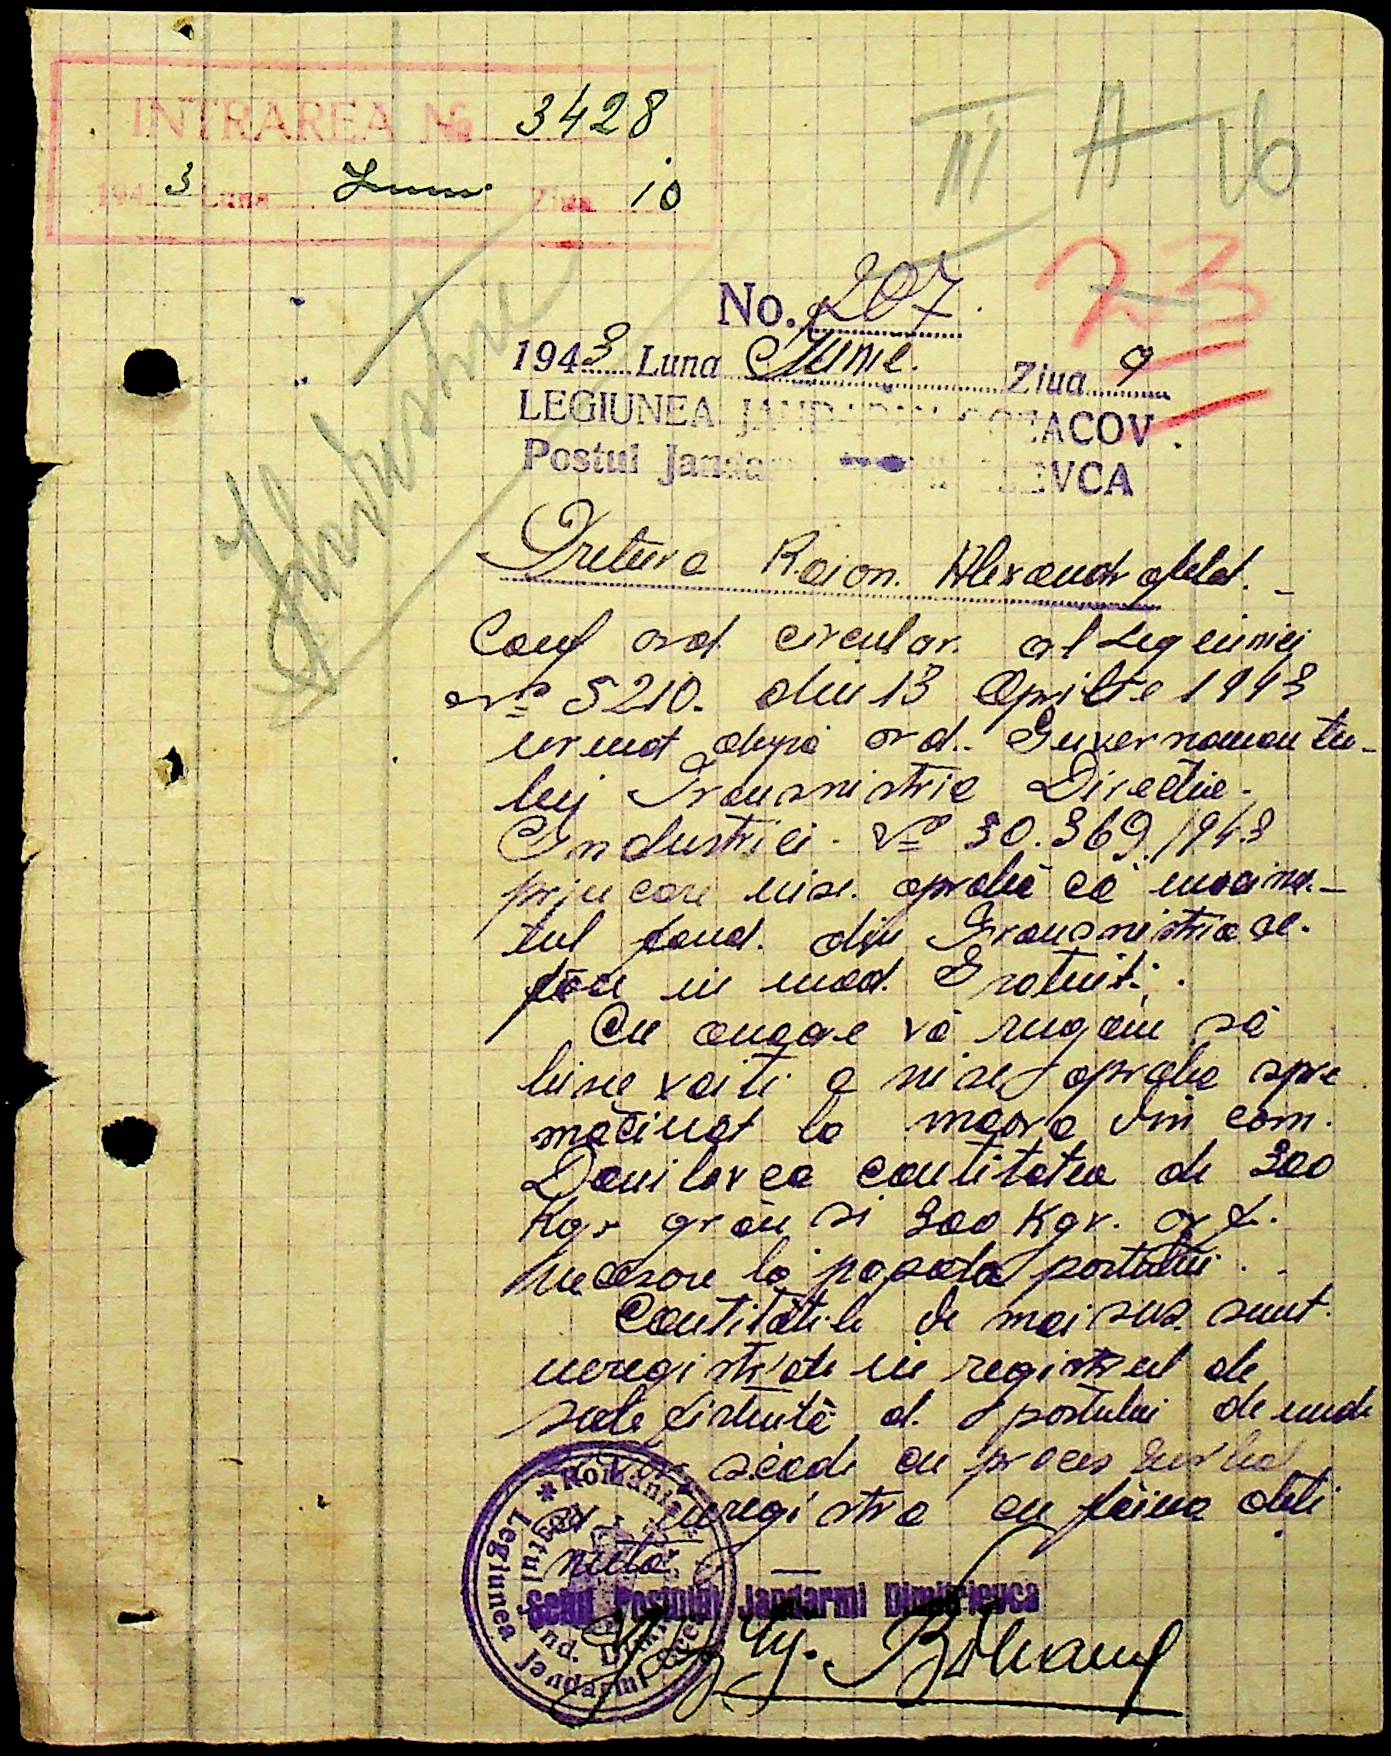 INTRAREA No 3428
1943 Luna Iunie Ziua 10
III A 16
23
No. 207.
1943 Luna Iunie. Ziua 9
LEGIUNEA JANDARMI OCEACOV
Postul Jandarmi DIMITRIEVCA
Pretura Raion. Alexandrfeld. -
Conf ord circular. al Legiunei
No 5210. din 13 Aprilie 1943
urmat după ord. Guvernamentu-
lui Transnistria Direcția.
Industriei. No 30.369/943
prin care nise. aprobă că macina-
tul jand. din Transnistria se.
face in mod. Gratuit.
Cu onoare vă rugăm să
bine voiti a nise aproba spre
măcinat la moara din com.
Danilovca cantitatea de 300
Kgr grâu si 300 Kgr. orz.
necesare la popota postului.
Cantitățile de mai sus. sunt.
inregistrate in registrul de
subzistență al postului de unde
se scade cu proces verbal
inregistra cu făina obti
nută. —
Seful Postului Jandarmi Dimitrievca
România
Legiunea Jandarmi Oceacov
Postul Jand.